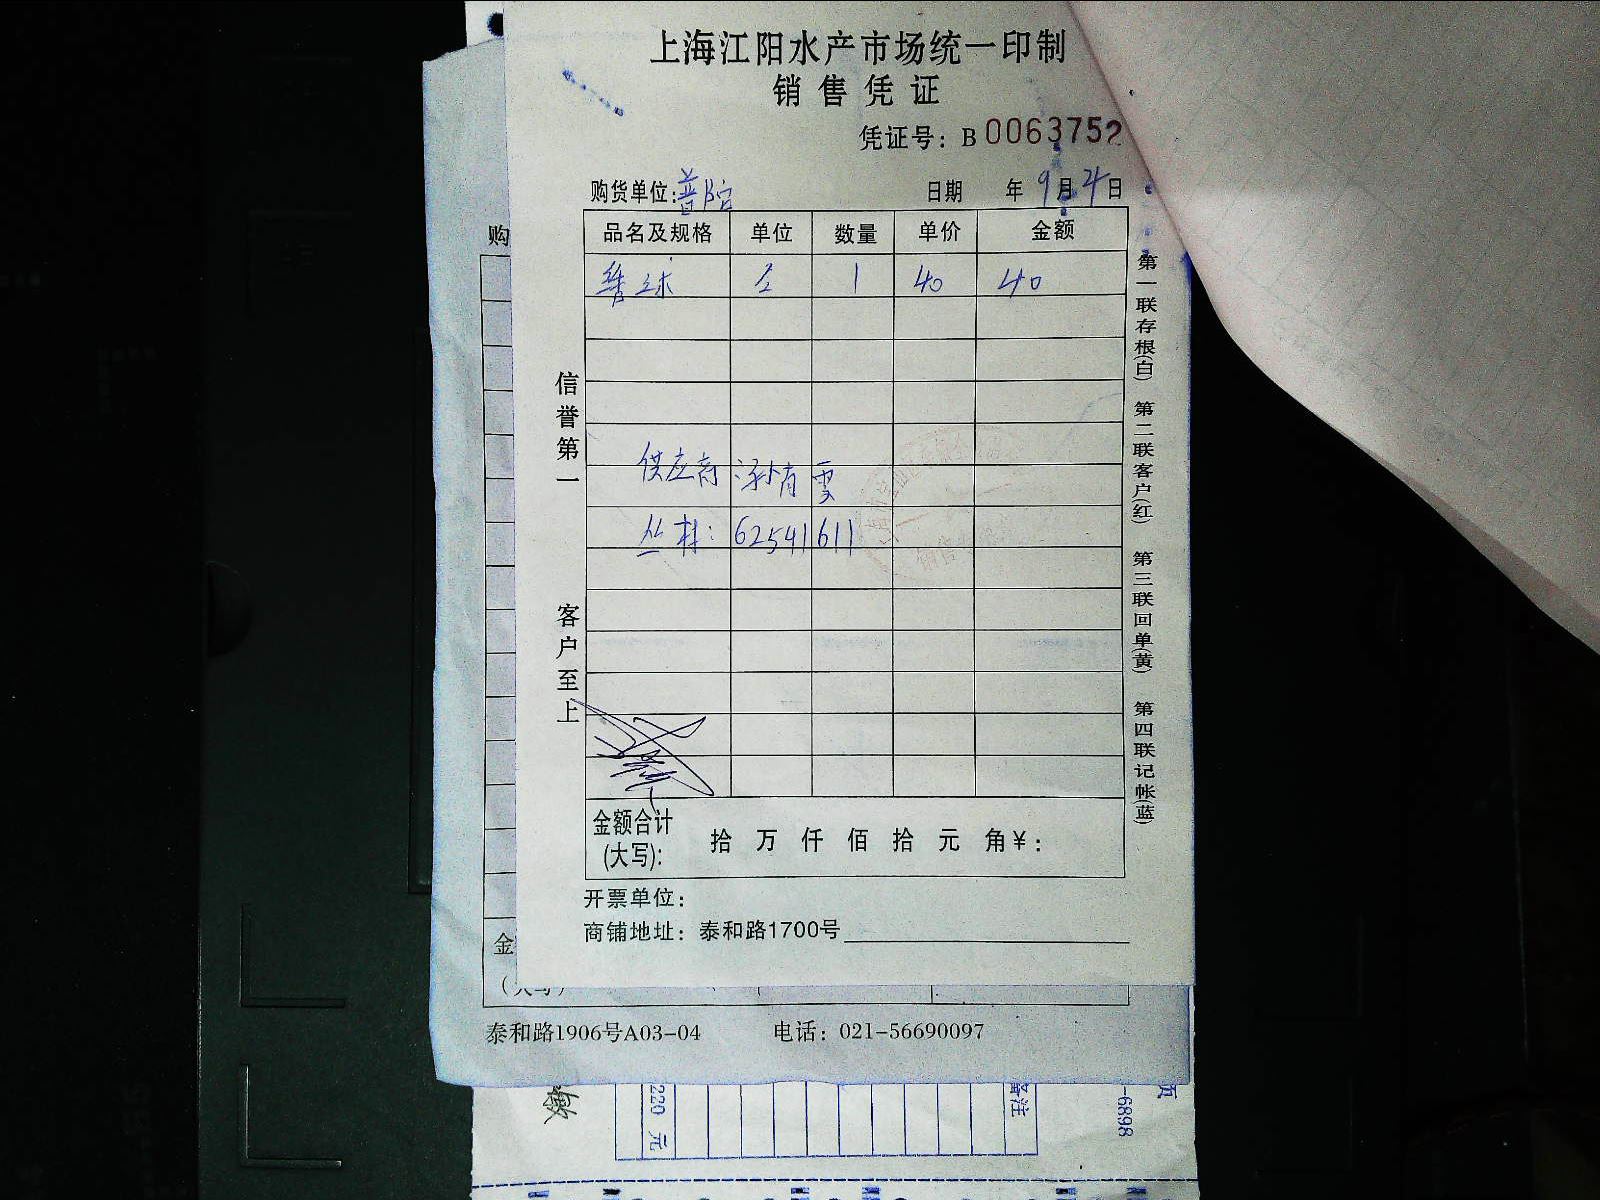 上海江阳水产市场统一印制
销售凭证
凭证号：B 0063752
购货单位：普陀 日期 年 9月21日
品名及规格 单位 数量 单价 金额
1 40 40
供应商
丛林：62541611
信誉第一
客户至上
第一联存根(白) 第二联客户(红) 第三联回单(黄) 第四联记帐(蓝)
金额合计
(大写)： 拾 万 仟 佰 拾 元 角¥：
开票单位：
商铺地址：泰和路1700号
购
金
(大写)
泰和路1906号A03-04 电话：021-56690097
220 元
备注
-6898
页